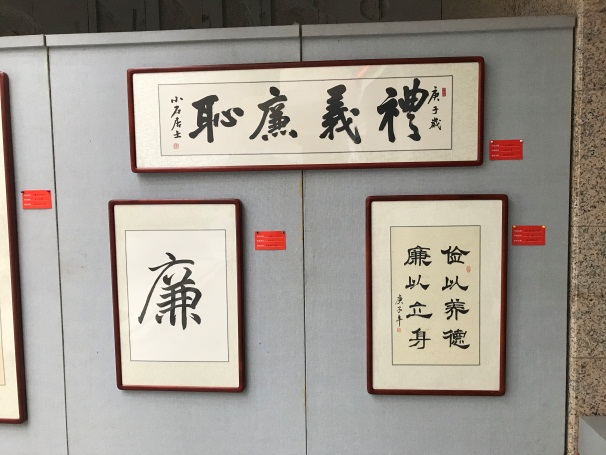 庚子歲
禮義廉恥
小石居士
廉
俭以养德
廉以立身
庚子年